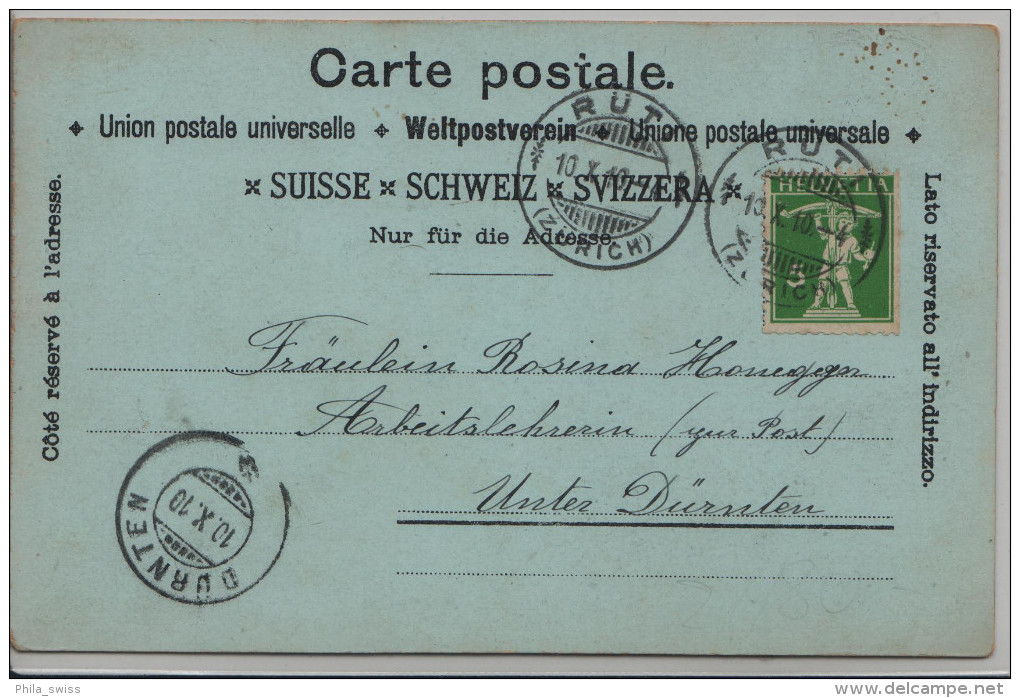 Carte postale.
✦ Union postale universelle ✦ Weltpostverein ✦ Unione postale universale ✦
SUISSE SCHWEIZ SVIZZERA
Nur für die Adresse.
Côté réservé à l'adresse.
Lato riservato all' indirizzo.
RÜTI
10.X.10.
(ZÜRICH)
RÜTI
10.X.10.
(ZÜRICH)
HELVETIA
5
Fräulein Rosina Honegger
Arbeitslehrerin (zur Post)
Unter Dürnten
DÜRNTEN
10.X.10
Phila_swiss
delcampe.net